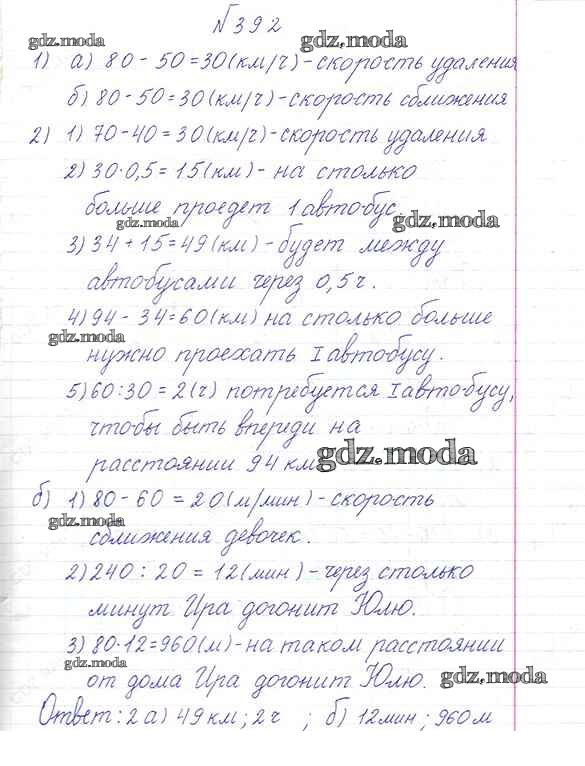 №392
gdz.moda gdz.moda
1) а) 80 - 50 = 30 (км/ч) - скорость удаления
б) 80 - 50 = 30 (км/ч) - скорость сближения
2) 1) 70 - 40 = 30 (км/ч) - скорость удаления
2) 30 · 0,5 = 15 (км) - на столько
больше проедет 1 автобус.
gdz.moda gdz.moda
3) 34 + 15 = 49 (км) - будет между
автобусами через 0,5 ч.
4) 94 - 34 = 60 (км) на столько больше
gdz.moda
нужно проехать I автобусу.
5) 60 : 30 = 2 (ч) потребуется I автобусу,
чтобы быть впереди на
расстоянии 94 км
gdz.moda
б) 1) 80 - 60 = 20 (м/мин) - скорость
gdz.moda
сближения девочек.
2) 240 : 20 = 12 (мин) - через столько
минут Ира догонит Юлю.
3) 80 · 12 = 960 (м) - на таком расстоянии
gdz.moda
от дома Ира догонит Юлю.
gdz.moda
Ответ: 2 а) 49 км; 2 ч ; б) 12 мин; 960 м